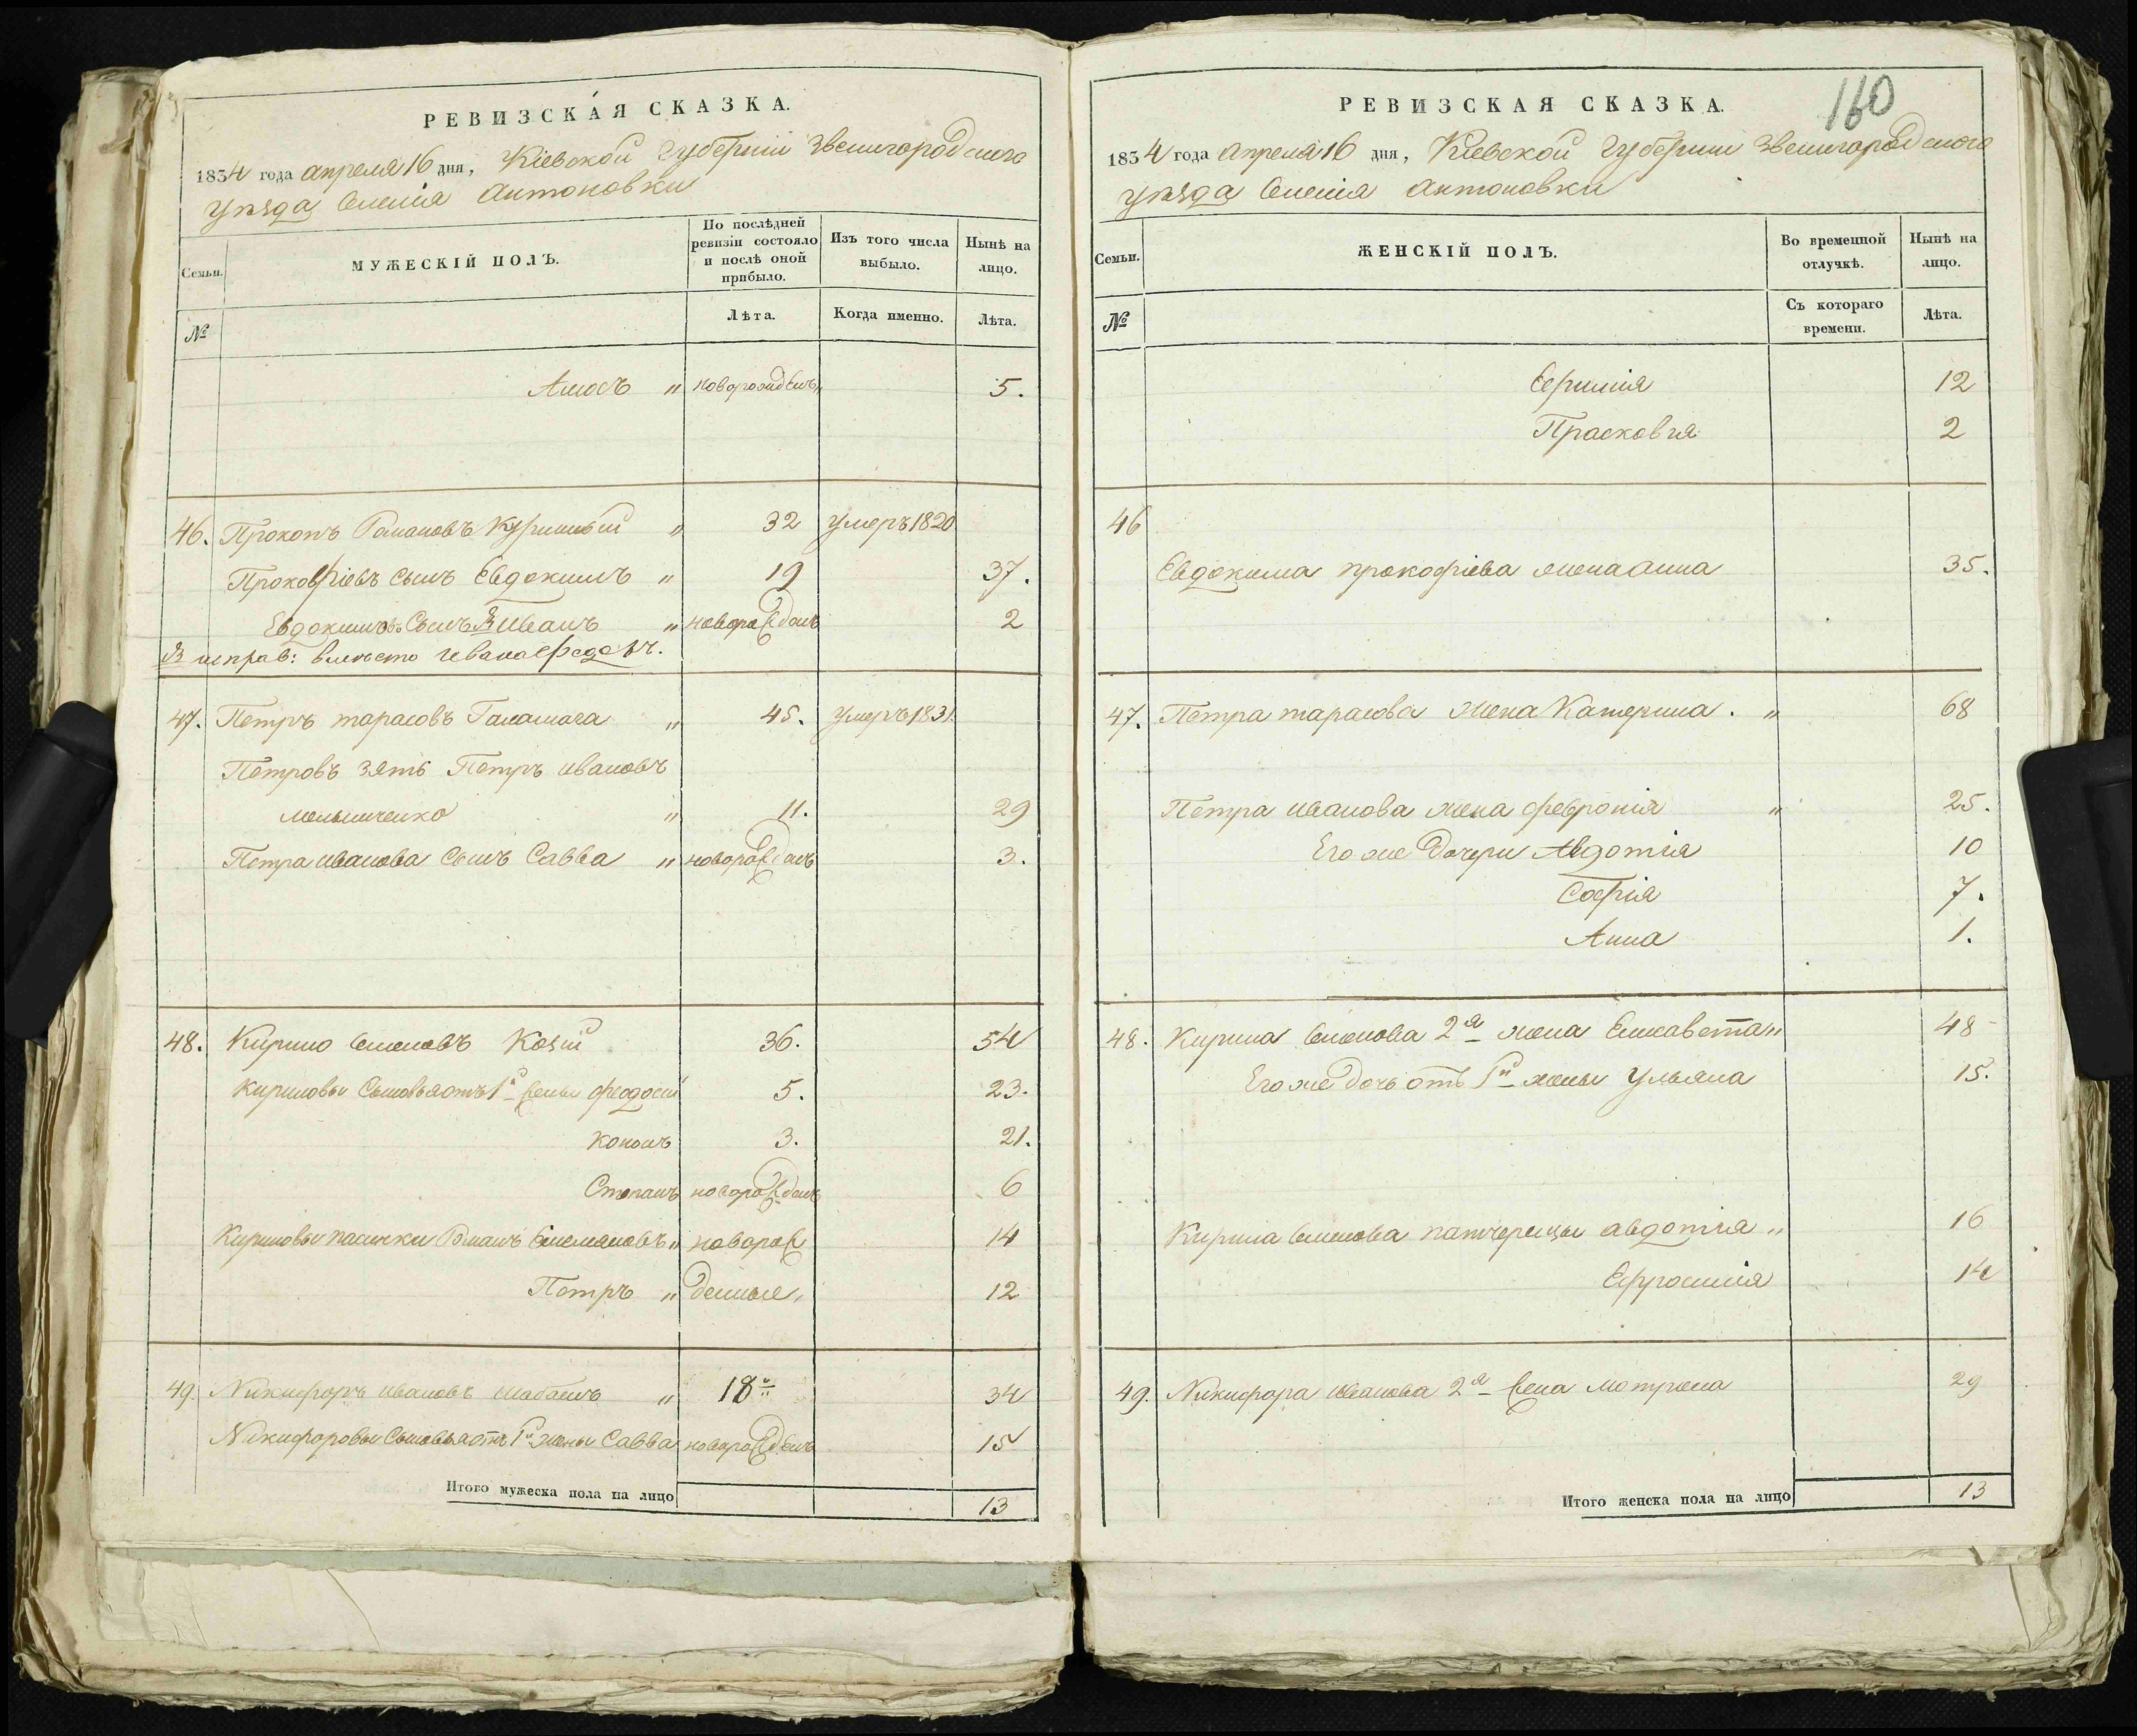 РЕВИЗСКАЯ СКАЗКА.
1834 года апреля 16 дня, Кіевской Губерніи Звенигородского
уѣзда Селенія Антоновки
Семьи.
МУЖЕСКІЙ ПОЛЪ.
По послѣдней ревизіи состояло и послѣ оной прибыло.
Изъ того числа выбыло.
Нынѣ на лицо.
№
Лѣта.
Когда именно.
Лѣта.
Амосъ " новорожденъ " 5.
46. Прокопъ Романовъ " 32 умеръ 1820
Прокофіевъ сынъ Евдокимъ " 19 37.
Евдокимовъ Сынъ Иванъ " новорожденъ 2
исправ: вместо Ивана Федоръ.
47. Петръ тарасовъ " 45. умеръ 1831.
Петровъ зять Петръ ивановъ
мельниченко " 11. 29
Петра иванова Сынъ Савва " новорожденъ 3.
48. Кирило Семеновъ Козій 36. 54
Кириловы Сыновья отъ 1й жены феодосій 5. 23.
Кононъ 3. 21.
Степанъ новорожденъ 6
Кириловы пасинки Романъ Емельяновъ " новорож 14
Петръ " денные " 12
49. Никифоръ ивановъ " 18 " 34
Никифоровы Сыновья отъ 1й жены Савва новорожденъ 15
Итого мужеска пола на лицо 13
160
РЕВИЗСКАЯ СКАЗКА.
1834 года апреля 16 дня, Кіевской Губерніи Звенигородского
уѣзда Селенія Антоновки
Семьи.
ЖЕНСКІЙ ПОЛЪ.
Во временной отлучкѣ.
Нынѣ на лицо.
№
Съ котораго времени.
Лѣта.
12
Прасковія 2
46
Евдокима прокофіева жена анна 35.
47. Петра тарасова жена Катерина. " 68
Петра иванова жена февронія " 25.
Его же дочери Авдотія 10
Софія 7.
Анна 1.
48. Кирила Семенова 2я жена Елисавета " 48
Его же дочь отъ 1й жены Ульяна 15.
Кирила Семенова патчерицы авдотія " 16
Ефросинія 14
49. Никифора иванова 2я жена мотрона 29
Итого женска пола на лицо 13